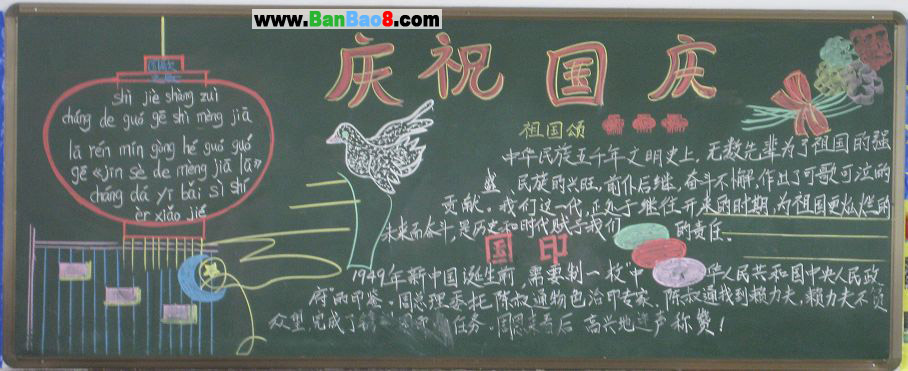 www.BanBao8.com
庆祝国庆
shì jiè shàng zuì
cháng de guó gē shì mèng jiā
lā rén mín gòng hé guó guó
gē «jīn sè de mèng jiā lā»
cháng dá yī bǎi sì shí
èr xiǎo jié
祖国颂
中华民族五千年文明史上，无数先辈为了祖国的强
盛 民族的兴旺，前仆后继，奋斗不懈，作出了可歌可泣的
贡献。我们这一代，正处于继往开来的时期，为祖国更灿烂的
未来而奋斗，是历史和时代赋予我们 的责任。
国印
1949年新中国诞生前，需要制一枚“中 华人民共和国中央人民政
府”的印鉴。周总理委托陈叔通物色治印专家，陈叔通找到赖力夫，赖力夫不负
众望，完成了 任务。周 看后 高兴地连声称赞！